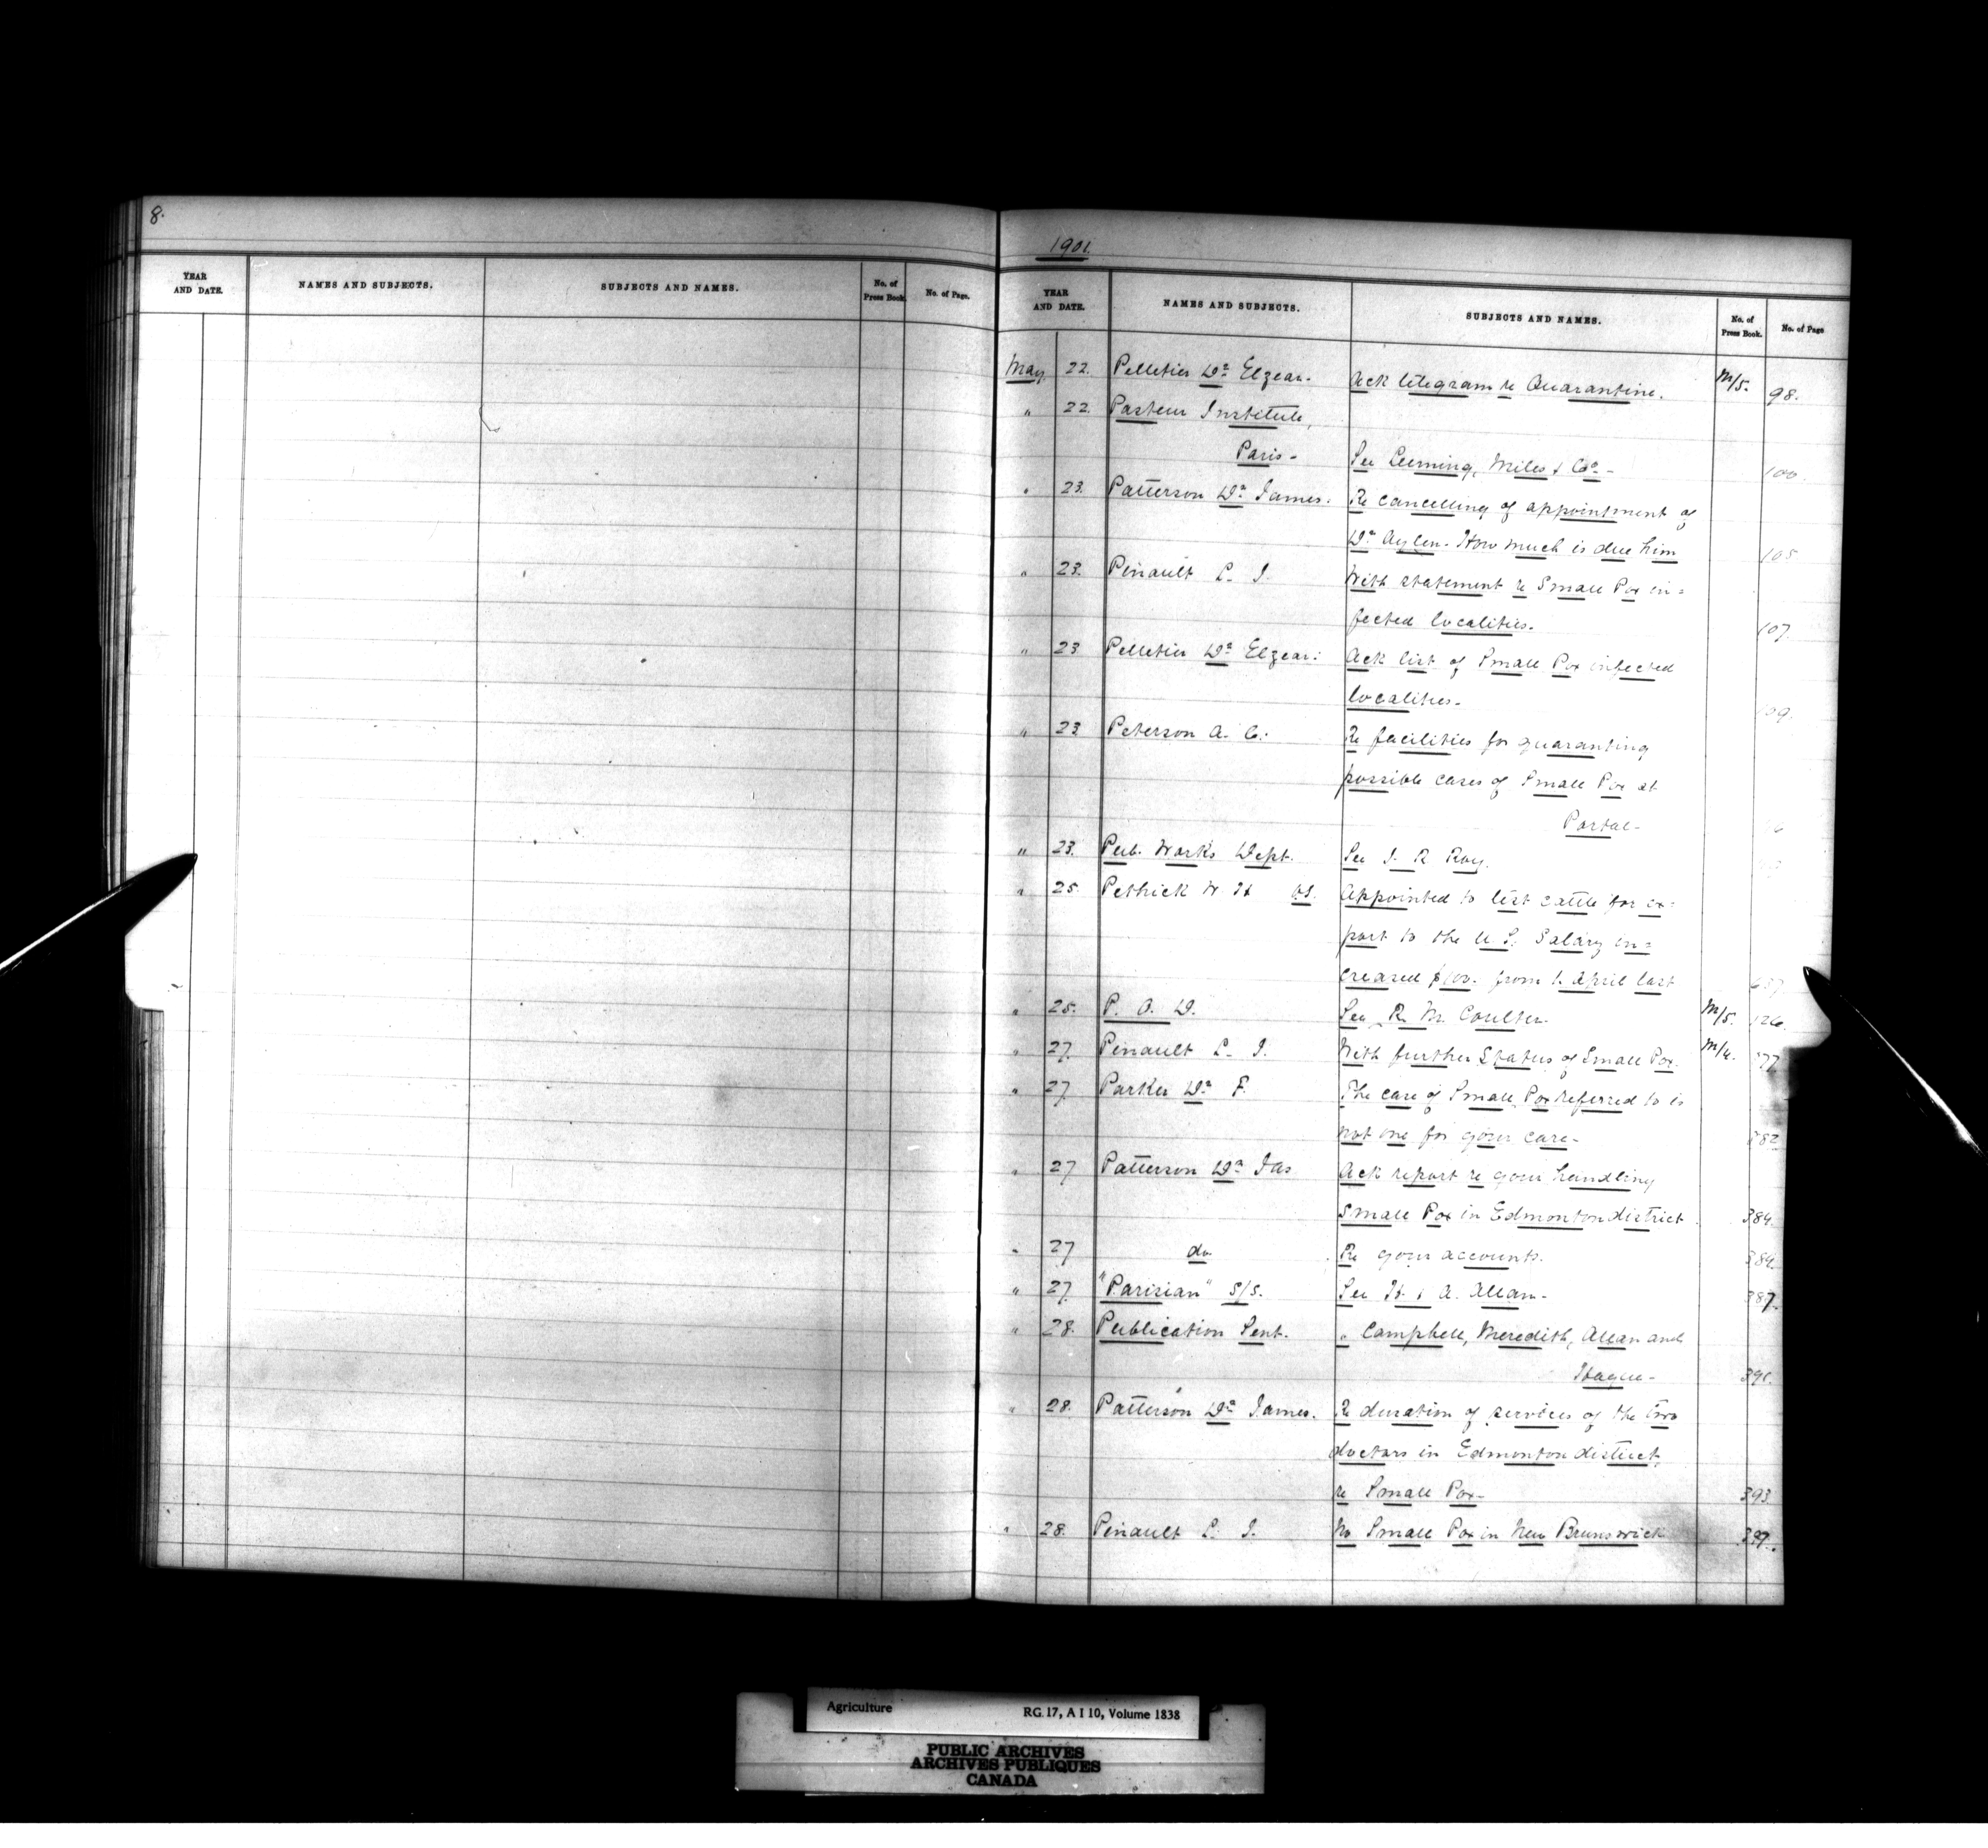 8.
YEAR AND DATE. NAMES AND SUBJECTS. SUBJECTS AND NAMES. No. of Press Book. No. of Page.
1901.
YEAR AND DATE. NAMES AND SUBJECTS. SUBJECTS AND NAMES. No. of Press Book. No. of Page
May 22. Pelletier Dr Elzear. Ack telegram re Quarantine. M/5. 98.
" 22. Pasteur Institute,
Paris - See Leeming, Miles & Co - 100
" 23. Patterson Dr James. Re cancelling of appointment of
Dr Aylen. How much is due him 105
" 23. Pinault L. J. With statement re Small Pox in=
fected localities. 107
" 23 Pelletier Dr Elzear: Ack list of Small Pox infected
localities. 109.
" 23 Peterson A. C. Re facilities for quaranting
possible cases of Small Pox at
Portal-
" 23. Pub. Works Dept. See J. R Roy.
" 25. Pethick W H Appointed to test cattle for ex=
port to the U.S. Salary in=
creased $100. from 1. April last
" 25. P. O. D. See R. M. Coulter. M/5. 126.
" 27. Pinault L. J. With further Status of Small Pox. M/4. 377
" 27. Parker Dr F. The case of Small Pox referred to is
not one for your care- 382
" 27 Patterson Dr Jas Ack report re your handling
Small Pox in Edmonton district 384.
" 27 do. Re your accounts. 384
" 27. "Parisian" S/S. See H. & A. Allan- 387.
" 28. Publication Sent. " Campbell, Meredith, Allan and
Hague- 391.
" 28. Patterson Dr James. Re duration of services of the two
doctors in Edmonton district,
re Small Pox- 393
" 28. Pinault L. J. No Small Pox in New Brunswick 397.
Agriculture RG 17, A I 10, Volume 1838
PUBLIC ARCHIVES
ARCHIVES PUBLIQUES
CANADA